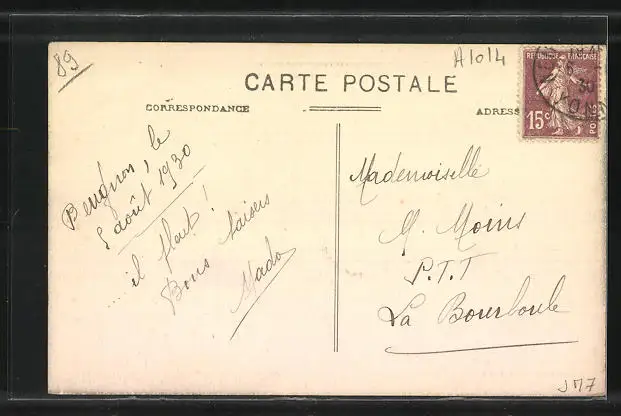 89
A1014
CARTE POSTALE
CORRESPONDANCE
ADRESS
REPUBLIQUE FRANÇAISE
15c
POSTES
30
le
5 août 1930
.... il pleut !
Bons baisers
Mado
Mademoiselle
M. Moins
P.T.T
La Bourboule
J M7